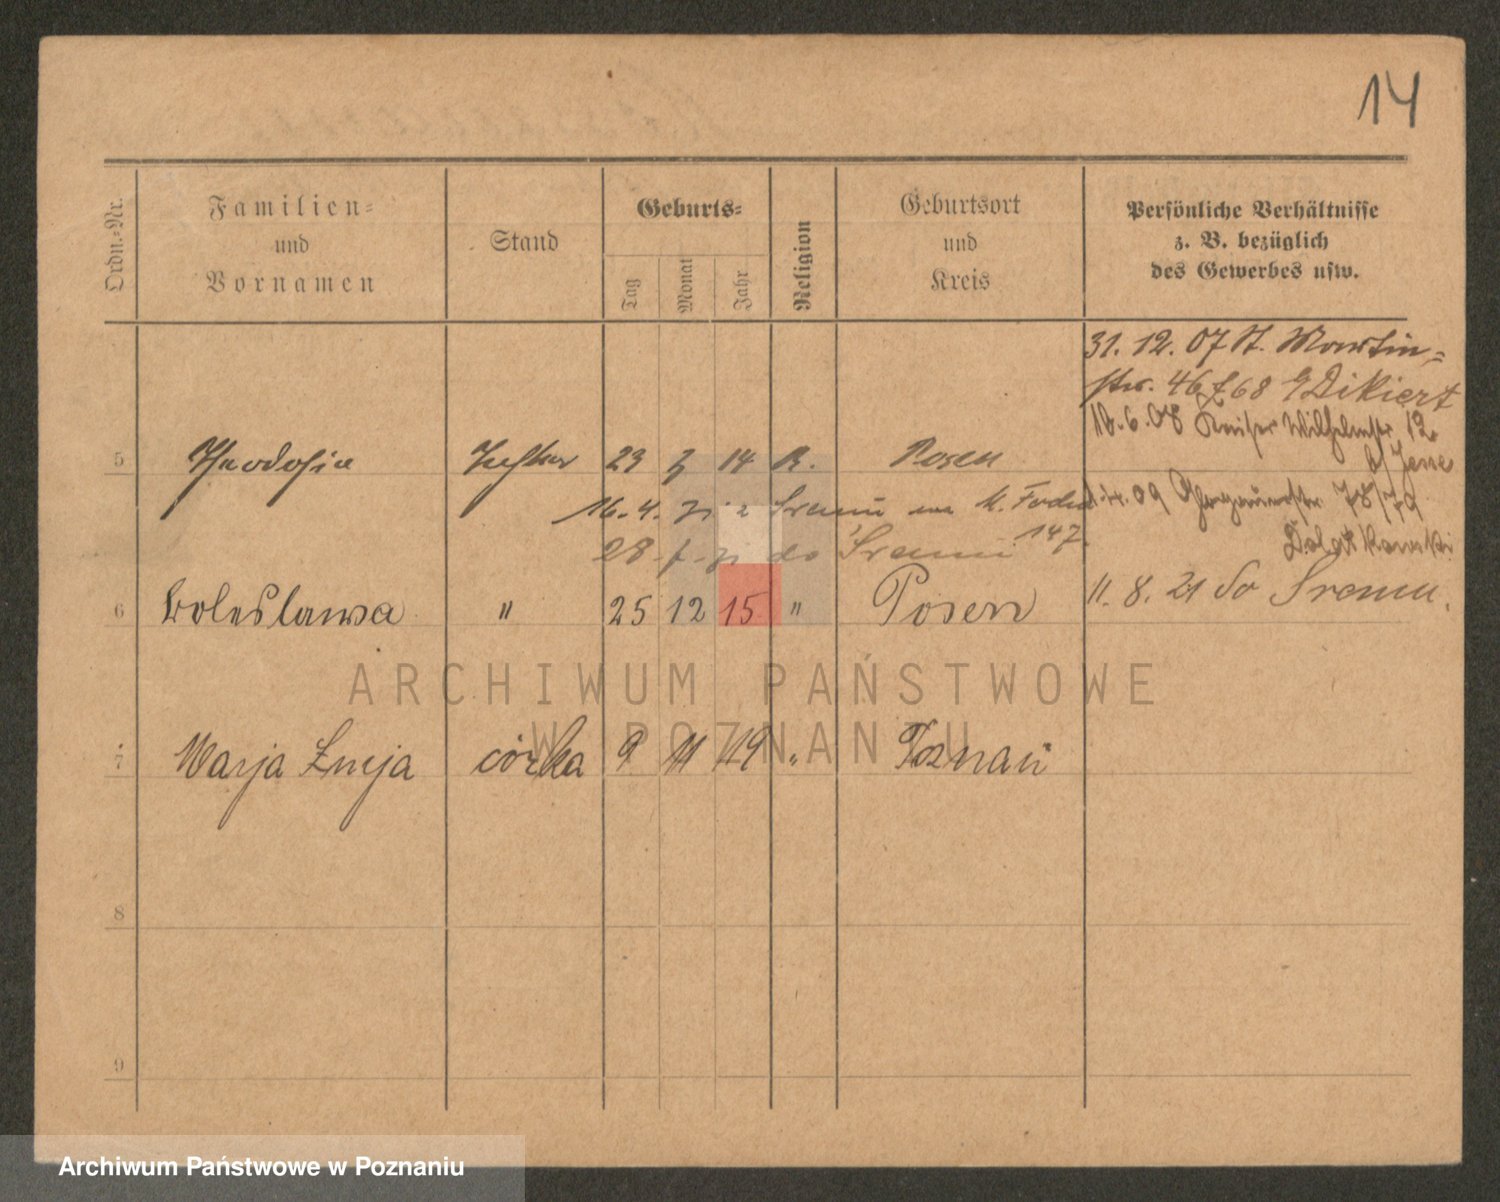 14
Ordn.-Nr.
Familien-
und
Vornamen
Stand
Geburts-
Tag
Monat
Jahr
Religion
Geburtsort
und
Kreis
Persönliche Verhältnisse
z. B. bezüglich
des Gewerbes usw.
31. 12. 07 St. Martin-
str. 46 68 Dikiert
10. 6. 08 Kaiser Wilhelmstr. 12
5 Theodosia Tochter 23 7 14 R. Posen
Jesse
16. 4. Śremu
1. 4. 09 78/79
147.
28. do Śremu
6 Boleslawa " 25 12 15 " Posen
11. 8. 21 do Śremu.
ARCHIWUM PAŃSTWOWE
W POZNANIU
7 Marja Łucja córka 9 11 19 " Poznań
8
9
Archiwum Państwowe w Poznaniu